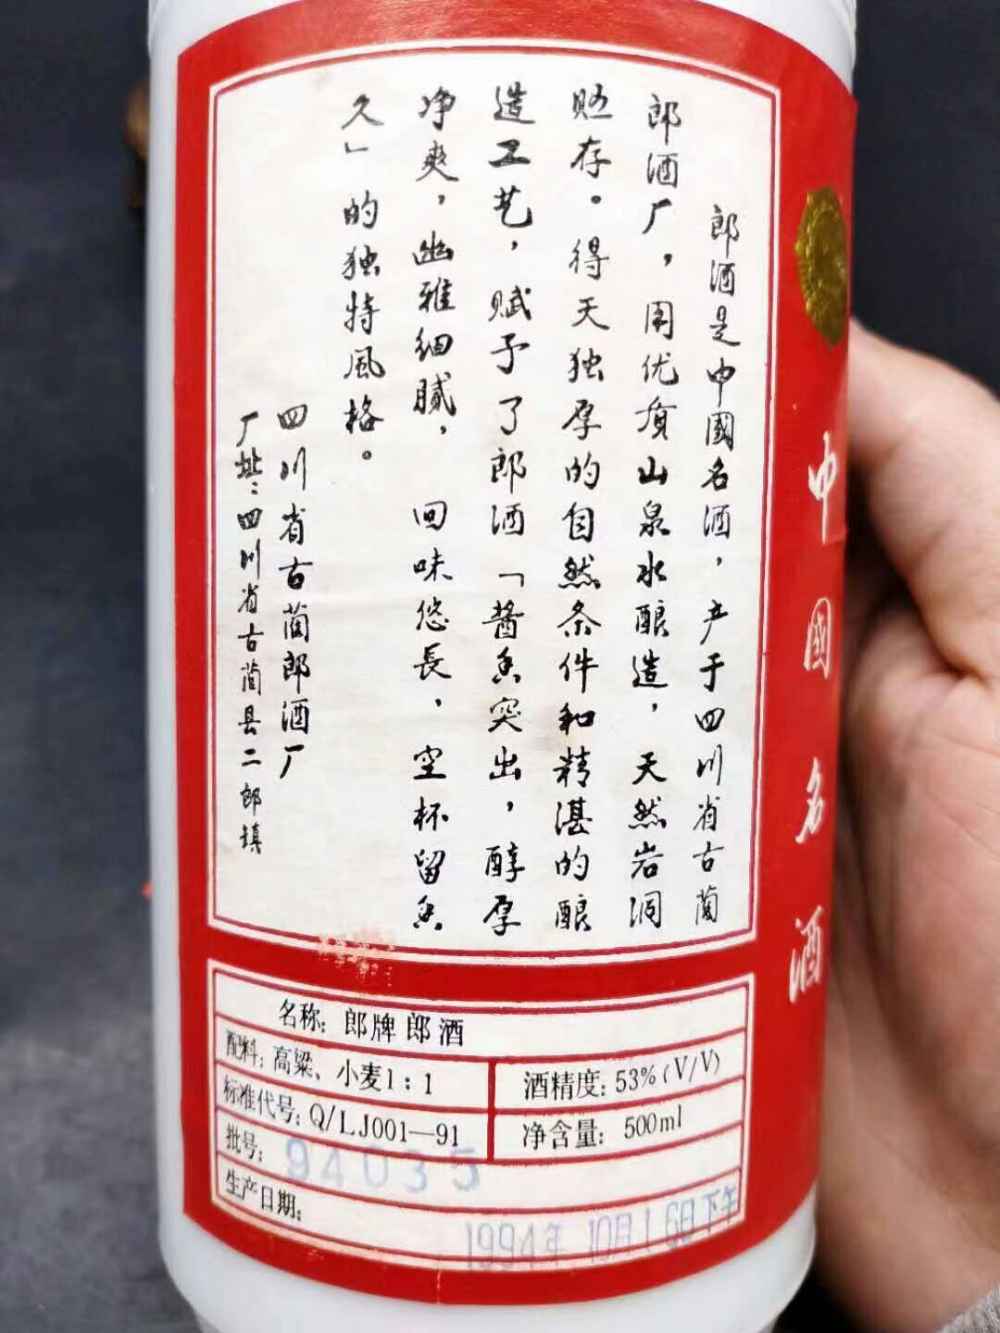 郎酒是中國名酒，产于四川省古蔺
郎酒厂，用优质山泉水酿造，天然岩洞
贮存。得天独厚的自然条件和精湛的酿
造工艺，赋予了郎酒「酱香突出，醇厚
净爽，幽雅细腻，回味悠長，空杯留香
久」的独特風格。
四川省古蔺郎酒厂
厂址：四川省古蔺县二郎镇
中國名酒
名称：郎牌郎酒
配料：高粱、小麦1：1
酒精度：53%（V/V）
标准代号：Q/LJ001—91
净含量：500ml
批号：94035
生产日期：1994年10月16日下午